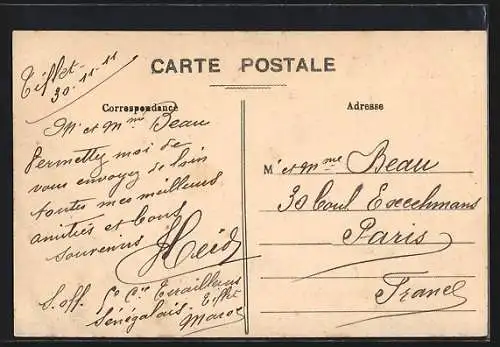 Tiflet
30-11-11
CARTE POSTALE
Correspondance
Adresse
Mr et Mme Beau
Permettez moi de
vous envoyez de loin
toutes mes meilleurs
amitiés et bons
souvenirs
S. off. 5e Cie Tirailleurs
Sénégalais - Tiflet
Maroc
Mr et Mme Beau
30 Boul Exelmans
Paris
France